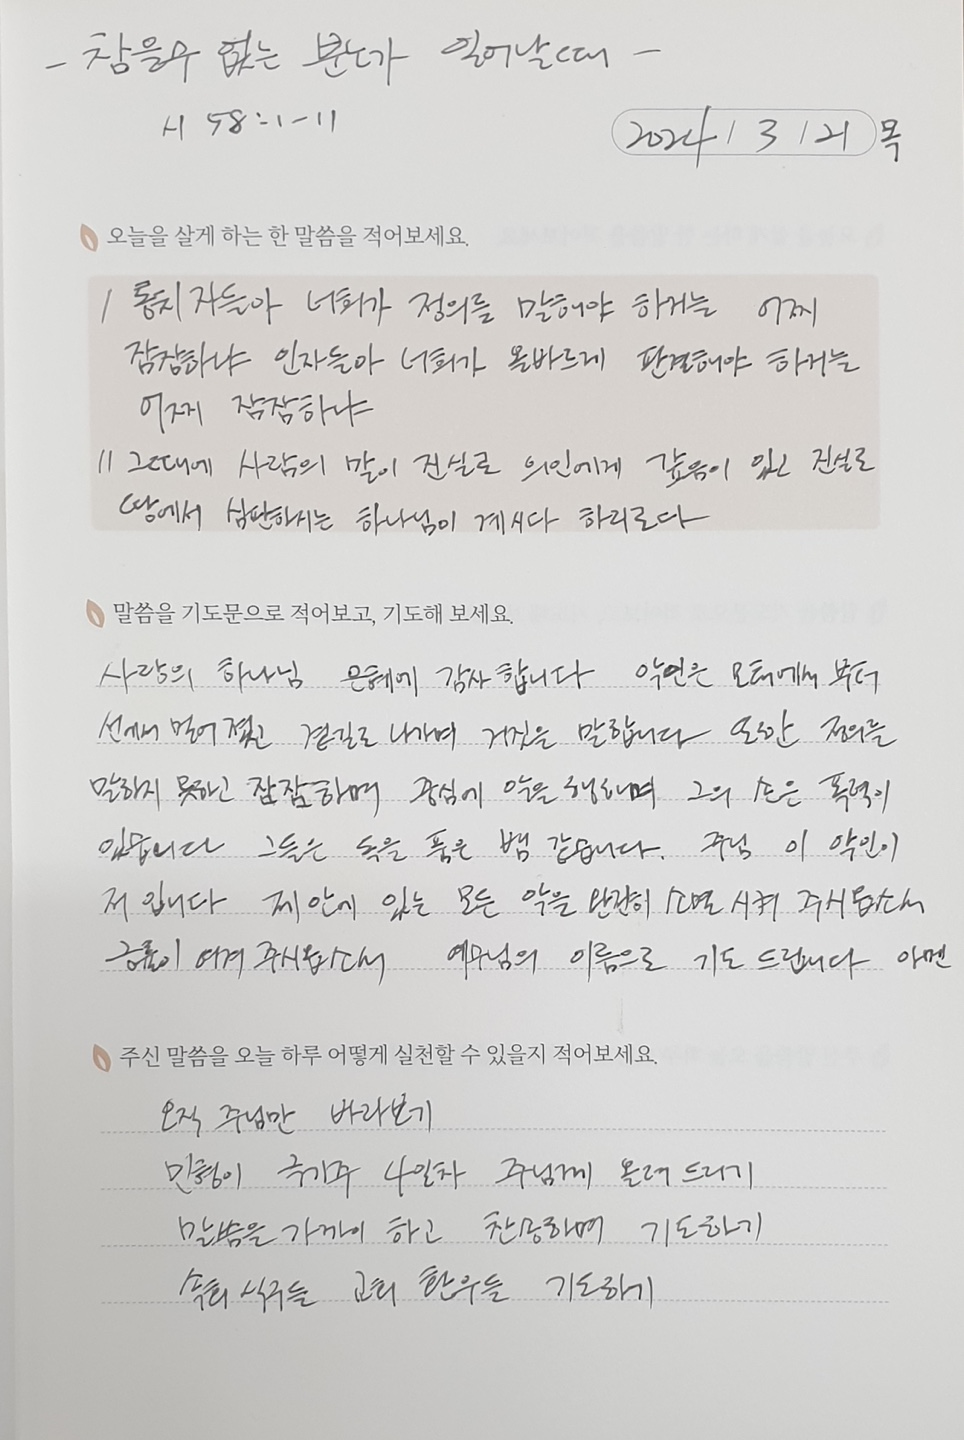 - 참을수 없는 분노가 일어날때 -
시 58:1-11
2024 / 3 / 21 목
오늘을 살게 하는 한 말씀을 적어보세요.
1 통치자들아 너희가 정의를 말해야 하거늘 어찌
잠잠하냐 인자들아 너희가 올바르게 판결해야 하거늘
어찌 잠잠하냐
11 그때에 사람의 말이 진실로 의인에게 갚음이 있고 진실로
땅에서 심판하시는 하나님이 계시다 하리로다
말씀을 기도문으로 적어보고, 기도해 보세요.
사랑의 하나님 은혜에 감사합니다 악인은 모태에서 부터
선에서 멀어졌고 곁길로 나가며 거짓을 말합니다 또한 정의를
말하지 못하고 잠잠하며 중심에 악을 행하며 그의 손은 폭력이
있습니다 그들은 독을 품은 뱀 같습니다. 주님 이 악인이
저 입니다 제 안에 있는 모든 악을 완전히 소멸시켜 주시옵소서
긍휼이 여겨 주시옵소서 예수님의 이름으로 기도 드립니다 아멘
주신 말씀을 오늘 하루 어떻게 실천할 수 있을지 적어보세요.
오직 주님만 바라보기
민형이 4일차 주님께 올려 드리기
말씀을 가까이 하고 찬송하며 기도하기
속회 식구들 교회 환우들 기도하기